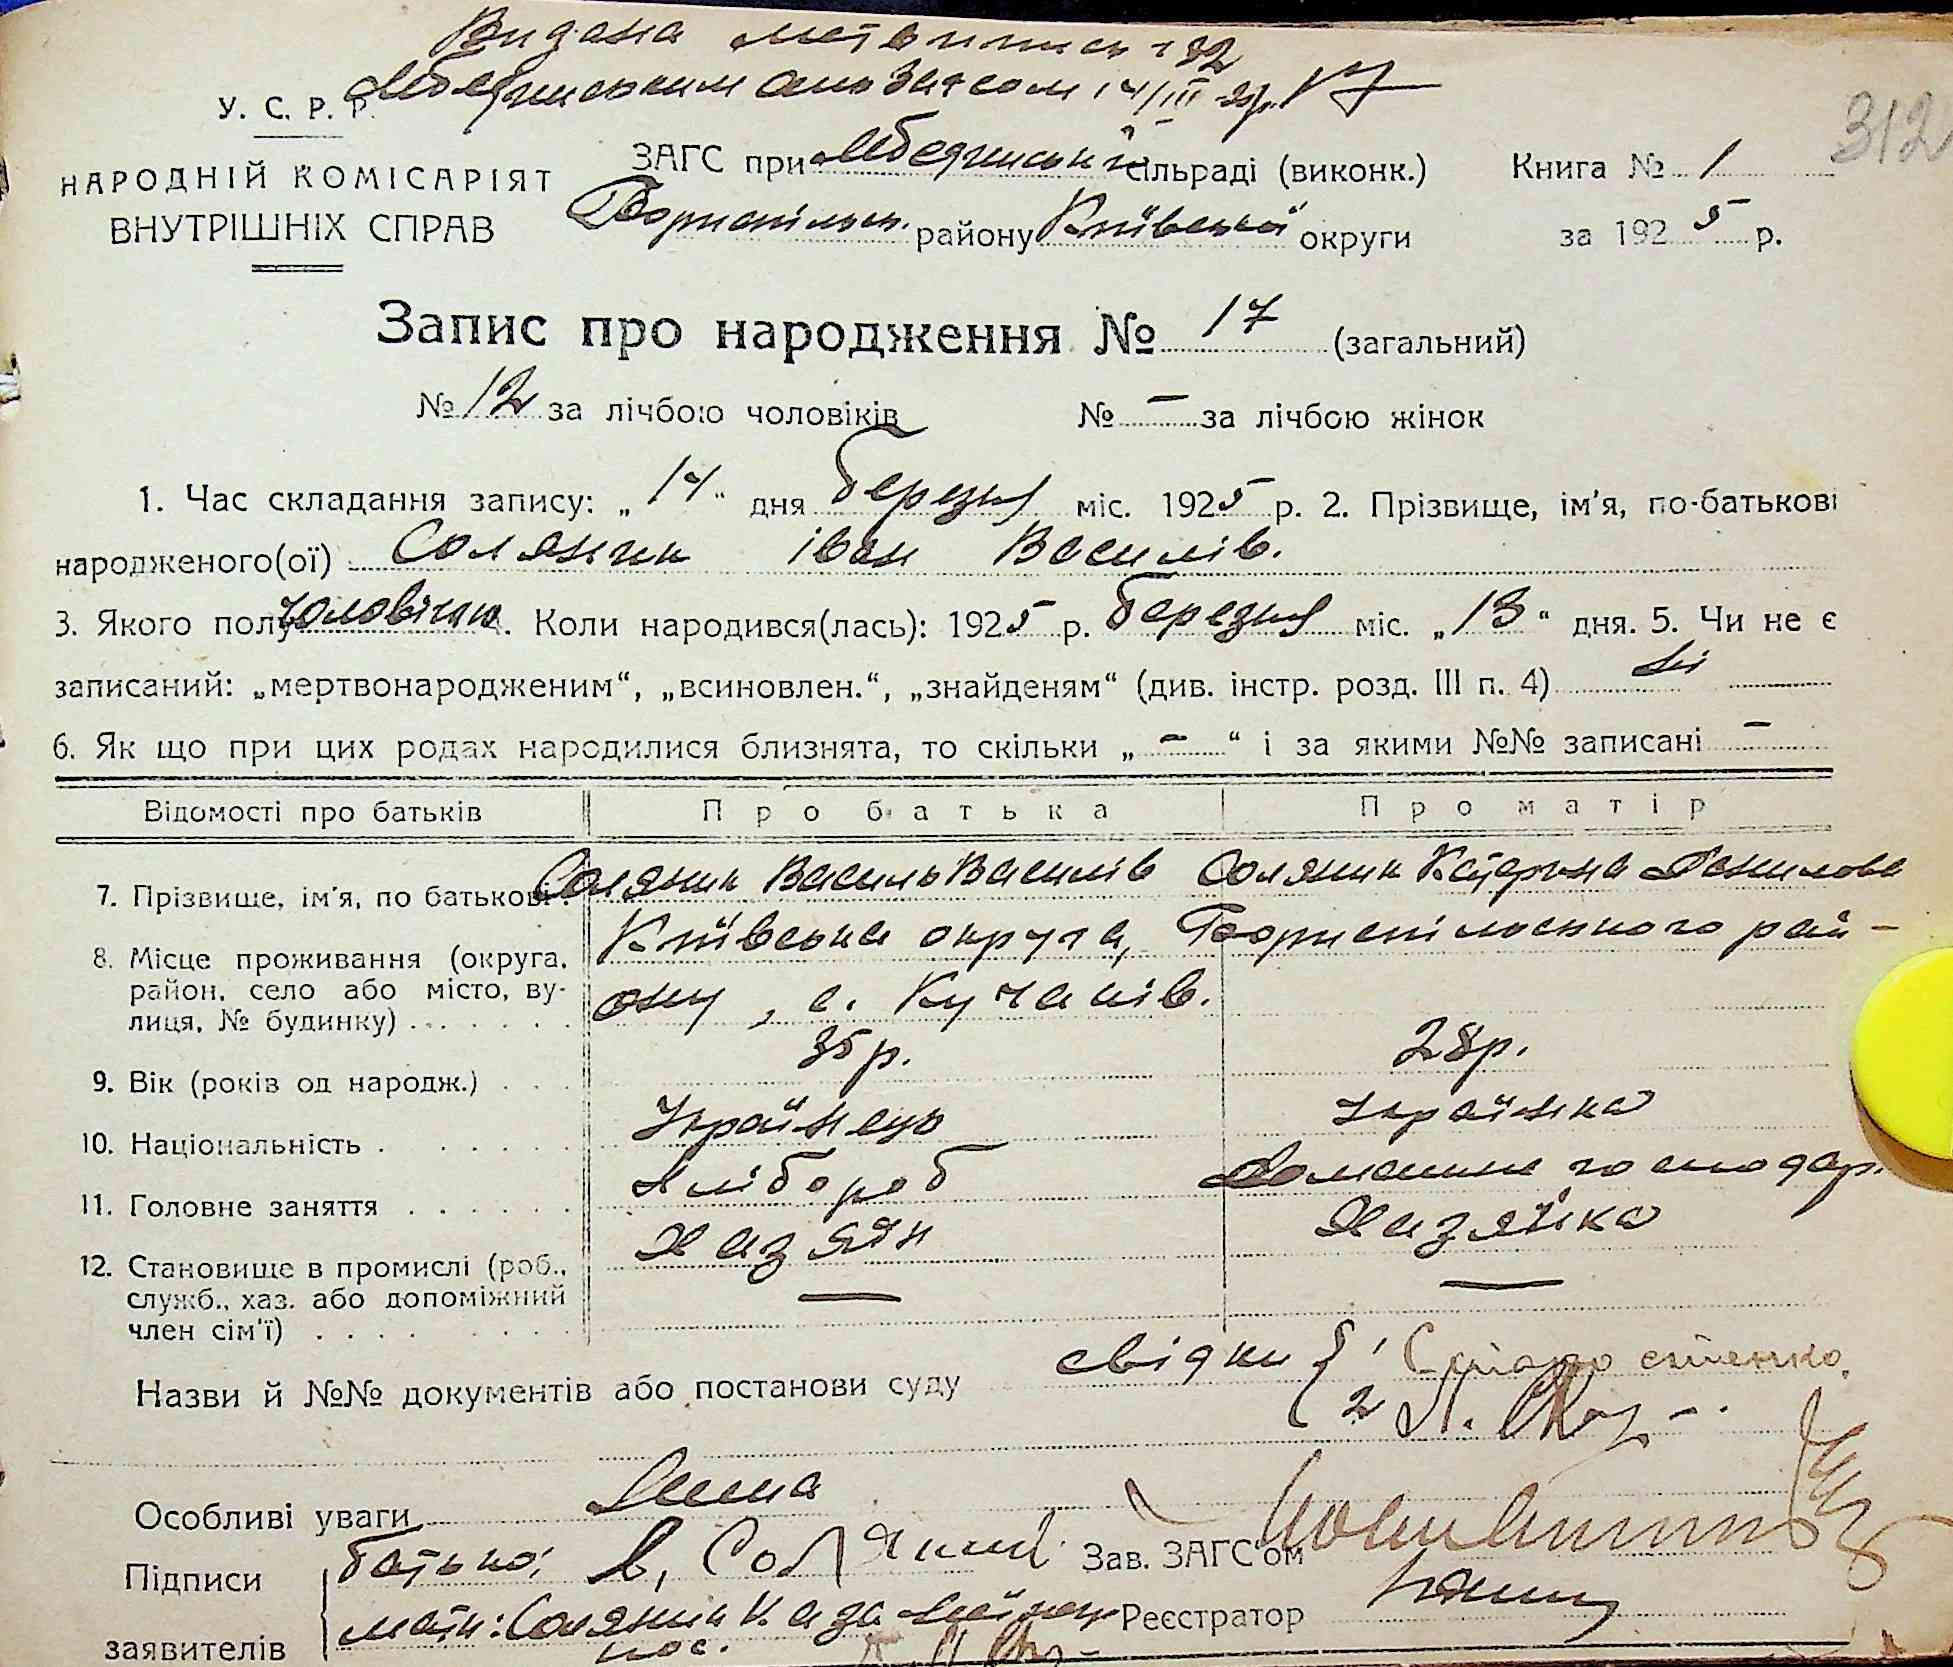 Видана
У. С. Р. Р. 14/III
312
НАРОДНІЙ КОМІСАРІЯТ
ВНУТРІШНІХ СПРАВ
ЗАГС при сільраді (виконк.)
Бориспільськ. району Київської округи
Книга № 1
за 1925 р.
Запис про народження № 17 (загальний)
№ 12 за лічбою чоловіків № — за лічбою жінок
1. Час складання запису: „14“ дня березня міс. 1925 р. 2. Прізвище, ім'я, по-батькові
народженого(ої) Соляник Іван Василів.
3. Якого полу чоловічого. Коли народився(лась): 1925 р. березня міс. „13“ дня. 5. Чи не є
записаний: „мертвонародженим“, „всиновлен.“, „знайденям“ (див. інстр. розд. III п. 4) Ні
6. Як що при цих родах народилися близнята, то скільки „—“ і за якими №№ записані —
Відомості про батьків Про батька Про матір
7. Прізвище, ім'я, по батькові. Соляник Василь Василів Соляник Катерина Данилова
8. Місце проживання (округа, Київська округа, Бориспільського рай-
район, село або місто, ву- ону, с. Кучаків.
лиця, № будинку)
9. Вік (років од народж.) 35 р. 28 р.
10. Національність Українець Українка
11. Головне заняття Хлібороб Домашнє господар.
12. Становище в промислі (роб., Хазяїн Хазяйка
служб., хаз. або допоміжний — —
член сім'ї)
Назви й №№ документів або постанови суду свідки { 1
2
Особливі уваги Нема
Підписи батько: В. Соляник Зав. ЗАГС'ом
заявителів мати: Соляник К. а за Реєстратор